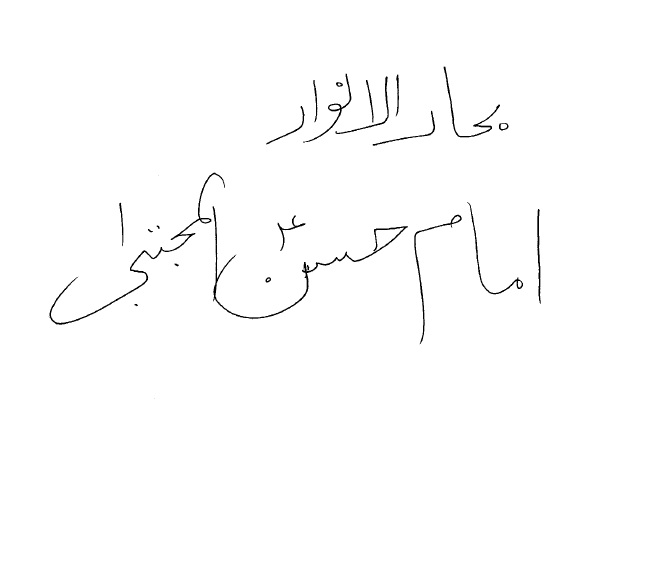 بحار الانوار
امام حسنؑ المجتبیٰ